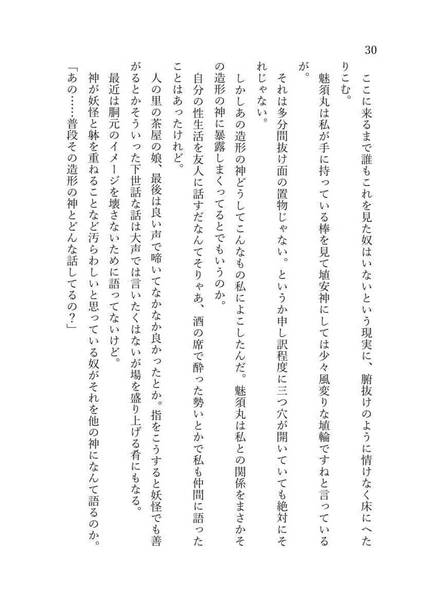 30
ここに来るまで誰もこれを見た奴はいないという現実に、腑抜けのように情けなく床にへた
りこむ。
魅須丸は私が手に持っている棒を見て埴安神にしては少々風変りな埴輪ですねと言っている
が。
それは多分間抜け面の置物じゃない。というか申し訳程度に三つ穴が開いていても絶対にそ
れじゃない。
しかしあの造形の神どうしてこんなもの私によこしたんだ。魅須丸は私との関係をまさかそ
の造形の神に暴露しまくってるとでもいうのか。
自分の性生活を友人に話すだなんてそりゃあ、酒の席で酔った勢いとかで私も仲間に語った
ことはあったけれど。
人の里の茶屋の娘、最後は良い声で啼いてなかなか良かったとか。指をこうすると妖怪でも善
がるとかそういった下世話な話は大声では言いたくはないが場を盛り上げる肴にもなる。
最近は胴元のイメージを壊さないために語ってないけど。
神が妖怪と躰を重ねることなど汚らわしいと思っている奴がそれを他の神になんて語るのか。
「あの……普段その造形の神とどんな話してるの？」